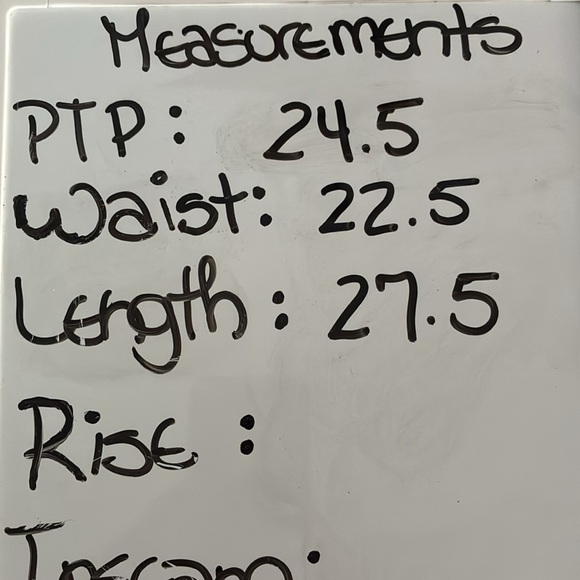 Measurements
PTP: 24.5
Waist: 22.5
Length: 27.5
Rise:
Inseam: